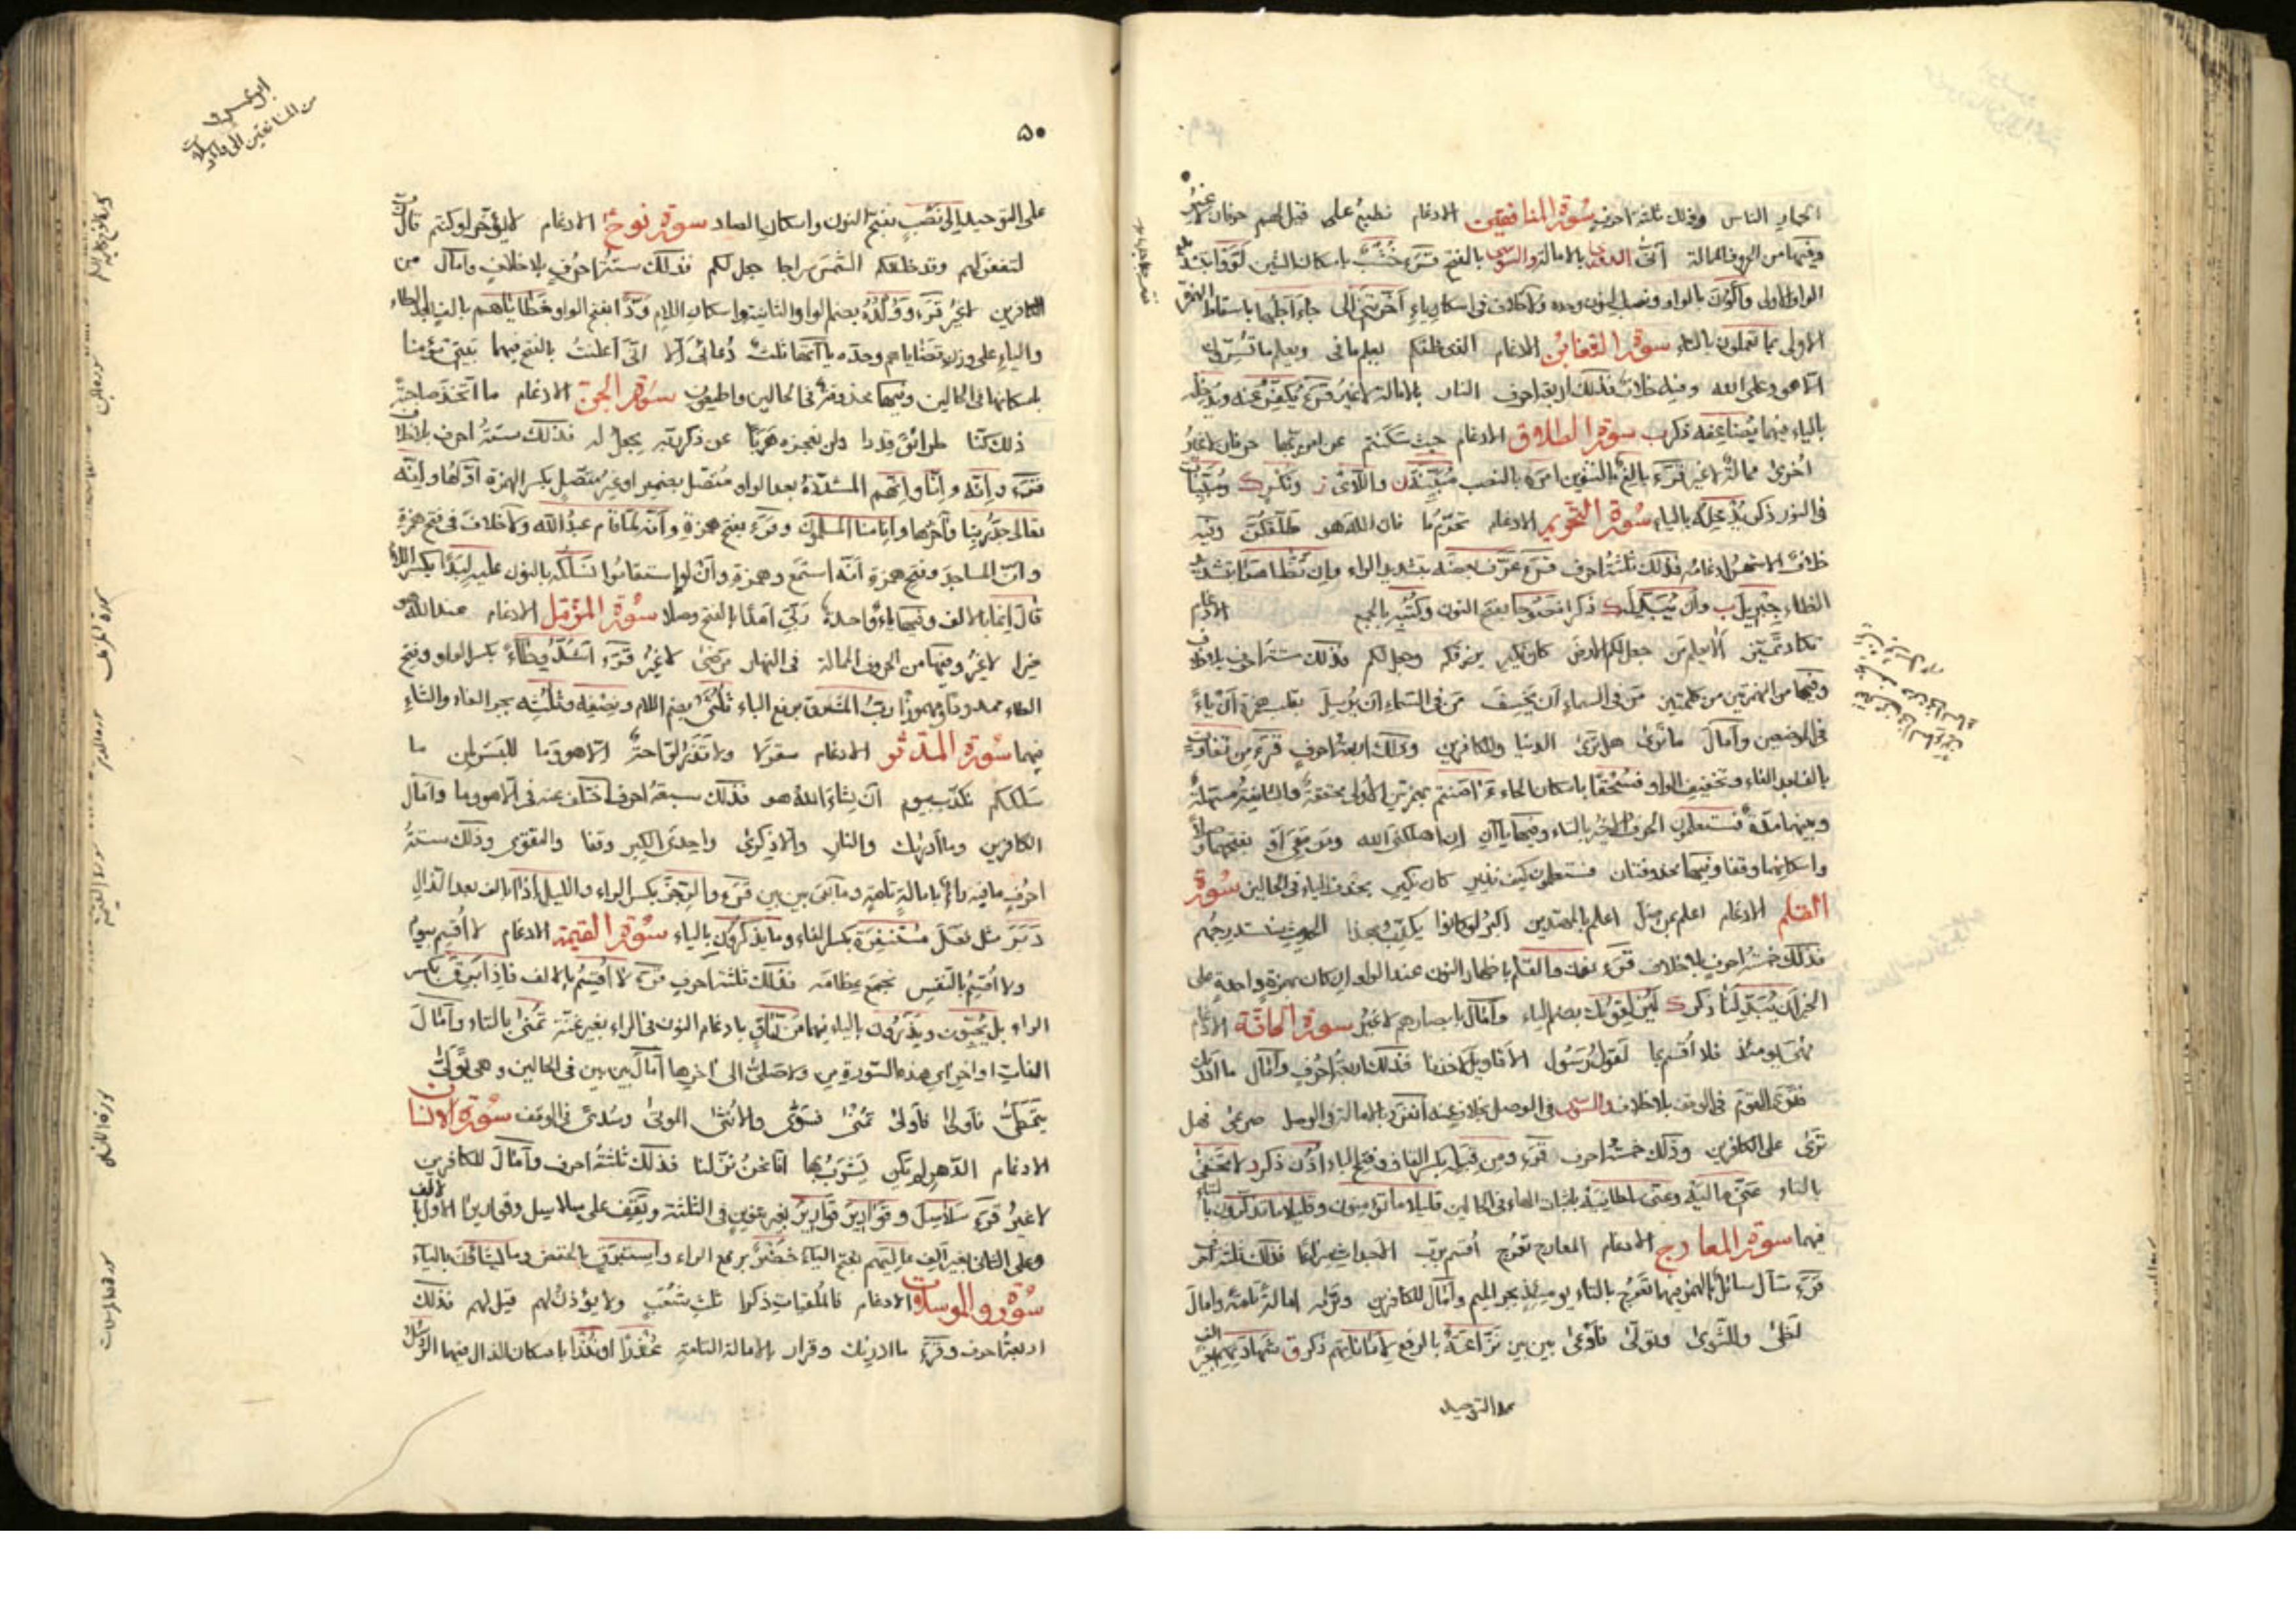 الحمار الناس وذلك ثلثة احرف سورة المنافقين الادغام فطبع على قيل لهم حرفان لا غير
وفيها من الحروف الممالة انى الدوري بالامالة والسوسي بالفتح قرء خشب باسكان الشين لووا بتشديد
الواو الاولى واكون بالواو ونصب النون وحده ولا خلاف في اسكان ياء اخرتني الى جاء اجلها باسقاط الهمزة
الاولى بما تعملون بالتاء سورة التغابن الادغام الذي خلقكم يعلم ما في ويعلم ما تسرون
الا هو وعلى الله وفيه خلاف فذلك اربعة احرف النار بالامالة لا غير قرء يكفر عنه ويدخله
بالياء فيهما يضاعفه ذكر ب سورة الطلاق الادغام حيث سكنتم عن امر ربها حرفان لا غير
اخرى ممالة لا غير قرء بالغ بالتنوين امره بالنصب مبينة ذ ن واللائي ز ونكر ك ومبينات
في النور ذكر يدخله بالياء سورة التحريم الادغام تحرم ما فان الله هو طلقكن وفيه
خلاف الاشهر ادغامه فذلك ثلثة احرف قرء عرف بعضه بتشديد الراء وان تظاهرا بتشديد
الظاء جبريل ب وان يبدله ك ذكرا نصوحا بفتح النون وكتبه بالجمع الادغام
تكاد تميز الا يعلم من جعل لكم الارض كان نكير يرزقكم وجعل لكم فذلك ستة احرف بلا خلاف
وفيها من الهمزتين من كلمتين من في السماء ان يخسف من في السماء ان يرسل بقلب همزة ان ياء
في الموضعين وامال ما ترى هل ترى الدنيا والكافرين وذلك اربعة احرف قرء من تفاوت
بالف بعد الفاء وتخفيف الواو فسحقا باسكان الحاء قرء امنتم بهمزتين الاولى محققة والثانية مسهلة
وبينهما مدة فستعلمون الحرف الاخير بالتاء وفيها ياآن ان اهلكني الله ومن معي او بفتحهما وصلا
واسكانهما وقفا وفيها محذوفتان فستعلمون كيف نذير كان نكير بحذف الياء في الحالين سورة
القلم الادغام اعلم بمن ضل اعلم بالمهتدين اكبر لو كانوا يكذب بهذا الحديث سنستدرجهم
فذلك خمسة احرف بلا خلاف قرء ن والقلم باظهار النون عند الواو ان كان بهمزة واحدة على
الخبر ان يبدلنا ذكر ك ليزلقونك بضم الياء وامال بابصارهم لا غير سورة الحاقة الادغام
فهي يومئذ فلا اقسم بما لقول رسول الاقاويل لاخذنا فذلك اربعة احرف وامال ما ادراك
فترى القوم في الوقف بلا خلاف والسوسي في الوصل بخلاف عنه انفرد بالامالة في الوصل صرعى فهل
ترى على الكافرين وذلك خمسة احرف قرء ومن قبله بكسر القاف وفتح الباء اذن ذكر د لا تخفى
بالتاء عني ماليه وعني سلطانيه باثبات الهاء في الحالين قليلا ما تؤمنون وقليلا ما تذكرون بالتاء
فيهما سورة المعارج الادغام المعارج تعرج اقسم برب الاجداث سراعا فذلك ثلثة احرف
قرء سأل سائل بالهمز فيهما تعرج بالتاء يومئذ بجر الميم وامال للكافرين ونراه امالة تامة وامال
لظى وللشوى وتولى فاوعى بين بين نزاعة بالرفع لاماناتهم ذكر ق بشهادتهم بغير الف
على التوحيد
٥٠
على التوحيد الى نصب بفتح النون واسكان الصاد سورة نوح الادغام لا يؤخر لو كنتم قال رب
لتغفر لهم وقد خلقكم الشمس سراجا جعل لكم فذلك ستة احرف بلا خلاف وامال من
الكافرين لا غير قرء وولده بضم الواو الثانية واسكان اللام ودا بفتح الواو خطاياهم بالف بعد الطاء
والياء على وزن قضاياهم وحده ياآتها ثلث دعائي الا اني اعلنت بالفتح فيهما بيتي مؤمنا
باسكانها في الحالين وفيها محذوفة في الحالين واطيعون سورة الجن الادغام ما اتخذ صاحبة
ذلك كنا طرائق قددا ولن نعجزه هربا عن ذكر ربه يجعل له فذلك ستة احرف بلا خلاف
قرء وانه وانا وانهم المشددة بعد الواو متصل بضمير او غير متصل بكسر الهمزة اولها وانه
تعالى جد ربنا وآخرها وانا منا المسلمون وقرء بفتح همزة وانه لما قام عبد الله ولا خلاف في فتح همزة
وان المساجد وفتح همزة انه استمع وهمزة وان لو استقاموا نسلكه بالنون عليه لبدا بكسر اللام
قال انما بالالف وفيها ياء واحدة ربي امدا بالفتح وصلا سورة المزمل الادغام عند الله هو
خيرا لا غير وفيها من الحروف الممالة في النهار مرضى لا غير قرء اشد وطاء بكسر الواو وفتح
الطاء ممدودا مهموزا رب المشرق برفع الباء ثلثي بضم اللام ونصفه وثلثه بجر الفاء والثاء
فيهما سورة المدثر الادغام سقر لا ولا تذر لواحة الا هو وما للبشر لمن ما
سلككم نكذب بيوم ان يشاء الله هو فذلك سبعة احرف اختلف عنه في الا هو وما وامال
الكافرين وما ادراك والنار والا ذكرى واحدى الكبر وقفا والتقوى وذلك ستة
احرف ما فيه راء بامالة تامة وما بقي بين بين قرء والرجز بكسر الراء والليل اذا بالف بعد الذال
دبر مثل فعل مستنفرة بكسر الفاء وما يذكرون بالياء سورة القيمة الادغام لا اقسم بيوم
ولا اقسم بالنفس نجمع عظامه فذلك ثلثة احرف قرء لا اقسم بالالف فاذا برق بكسر
الراء بل يحبون ويذرون بالياء فيهما من راق بادغام النون في الراء بغير غنة تمنى بالتاء وامال
الفات اواخر اي هذه السورة من ولا صلى الى اخرها امال بين بين في الحالين وهي وتولى
يتمطى فاولى فاولى تمنى فسوى والانثى الموتى وسدى في الوقف سورة الانسان
الادغام الدهر لم يكن يشرب بها انا نحن نزلنا فذلك ثلثة احرف وامال للكافرين
لا غير قرء سلاسل وقوارير قوارير بغير تنوين في الثلثة ويقف على سلاسل وقواريرا الاول بالف
وعلى الثاني بغير الف عاليهم بفتح الياء خضر برفع الراء واستبرق بالخفض وما يشاؤن بالياء
سورة والمرسلات الادغام فالملقيات ذكرا ثلث شعب ولا يؤذن لهم قيل لهم فذلك
اربعة احرف وقرء ما ادريك وقرار بالامالة التامة عذرا او نذرا باسكان الذال فيهما الرسل
ابو عمرو
من المنافقين الى والمرسلات
سورة الجن
سورة المزمل
سورة المدثر
سورة القيمة
سورة الانسان
سورة والمرسلات